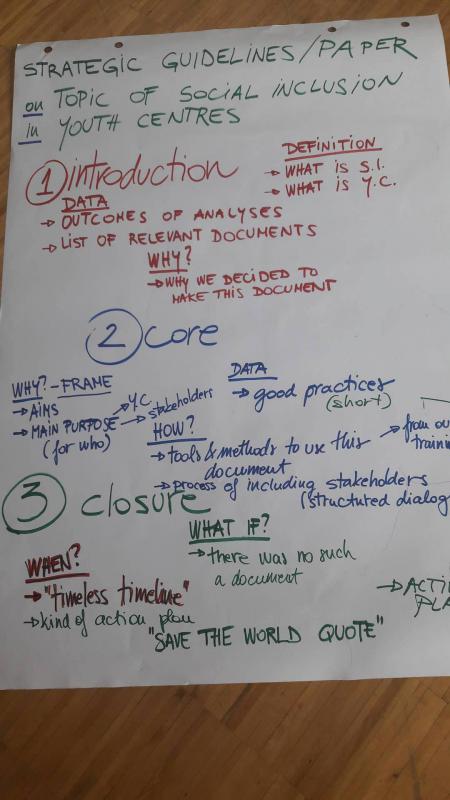 STRATEGIC GUIDELINES/PAPER
on TOPIC OF SOCIAL INCLUSION
in YOUTH CENTRES
1 introduction
DEFINITION
→ WHAT IS S.I.
→ WHAT IS Y.C.
DATA
→ OUTCOMES OF ANALYSES
→ LIST OF RELEVANT DOCUMENTS
WHY?
→ WHY WE DECIDED TO
MAKE THIS DOCUMENT
2 core
WHY? - FRAME
→ AIMS
→ MAIN PURPOSE
(for who)
→ Y.C.
→ stakeholders
DATA
→ good practices
(short)
HOW?
→ tools & methods to use this
document
→ from
→ process of including stakeholders
(structured
3 closure
WHAT IF?
→ there was no such
a document
WHEN?
→ "timeless timeline"
→ kind of action plan
"SAVE THE WORLD QUOTE"